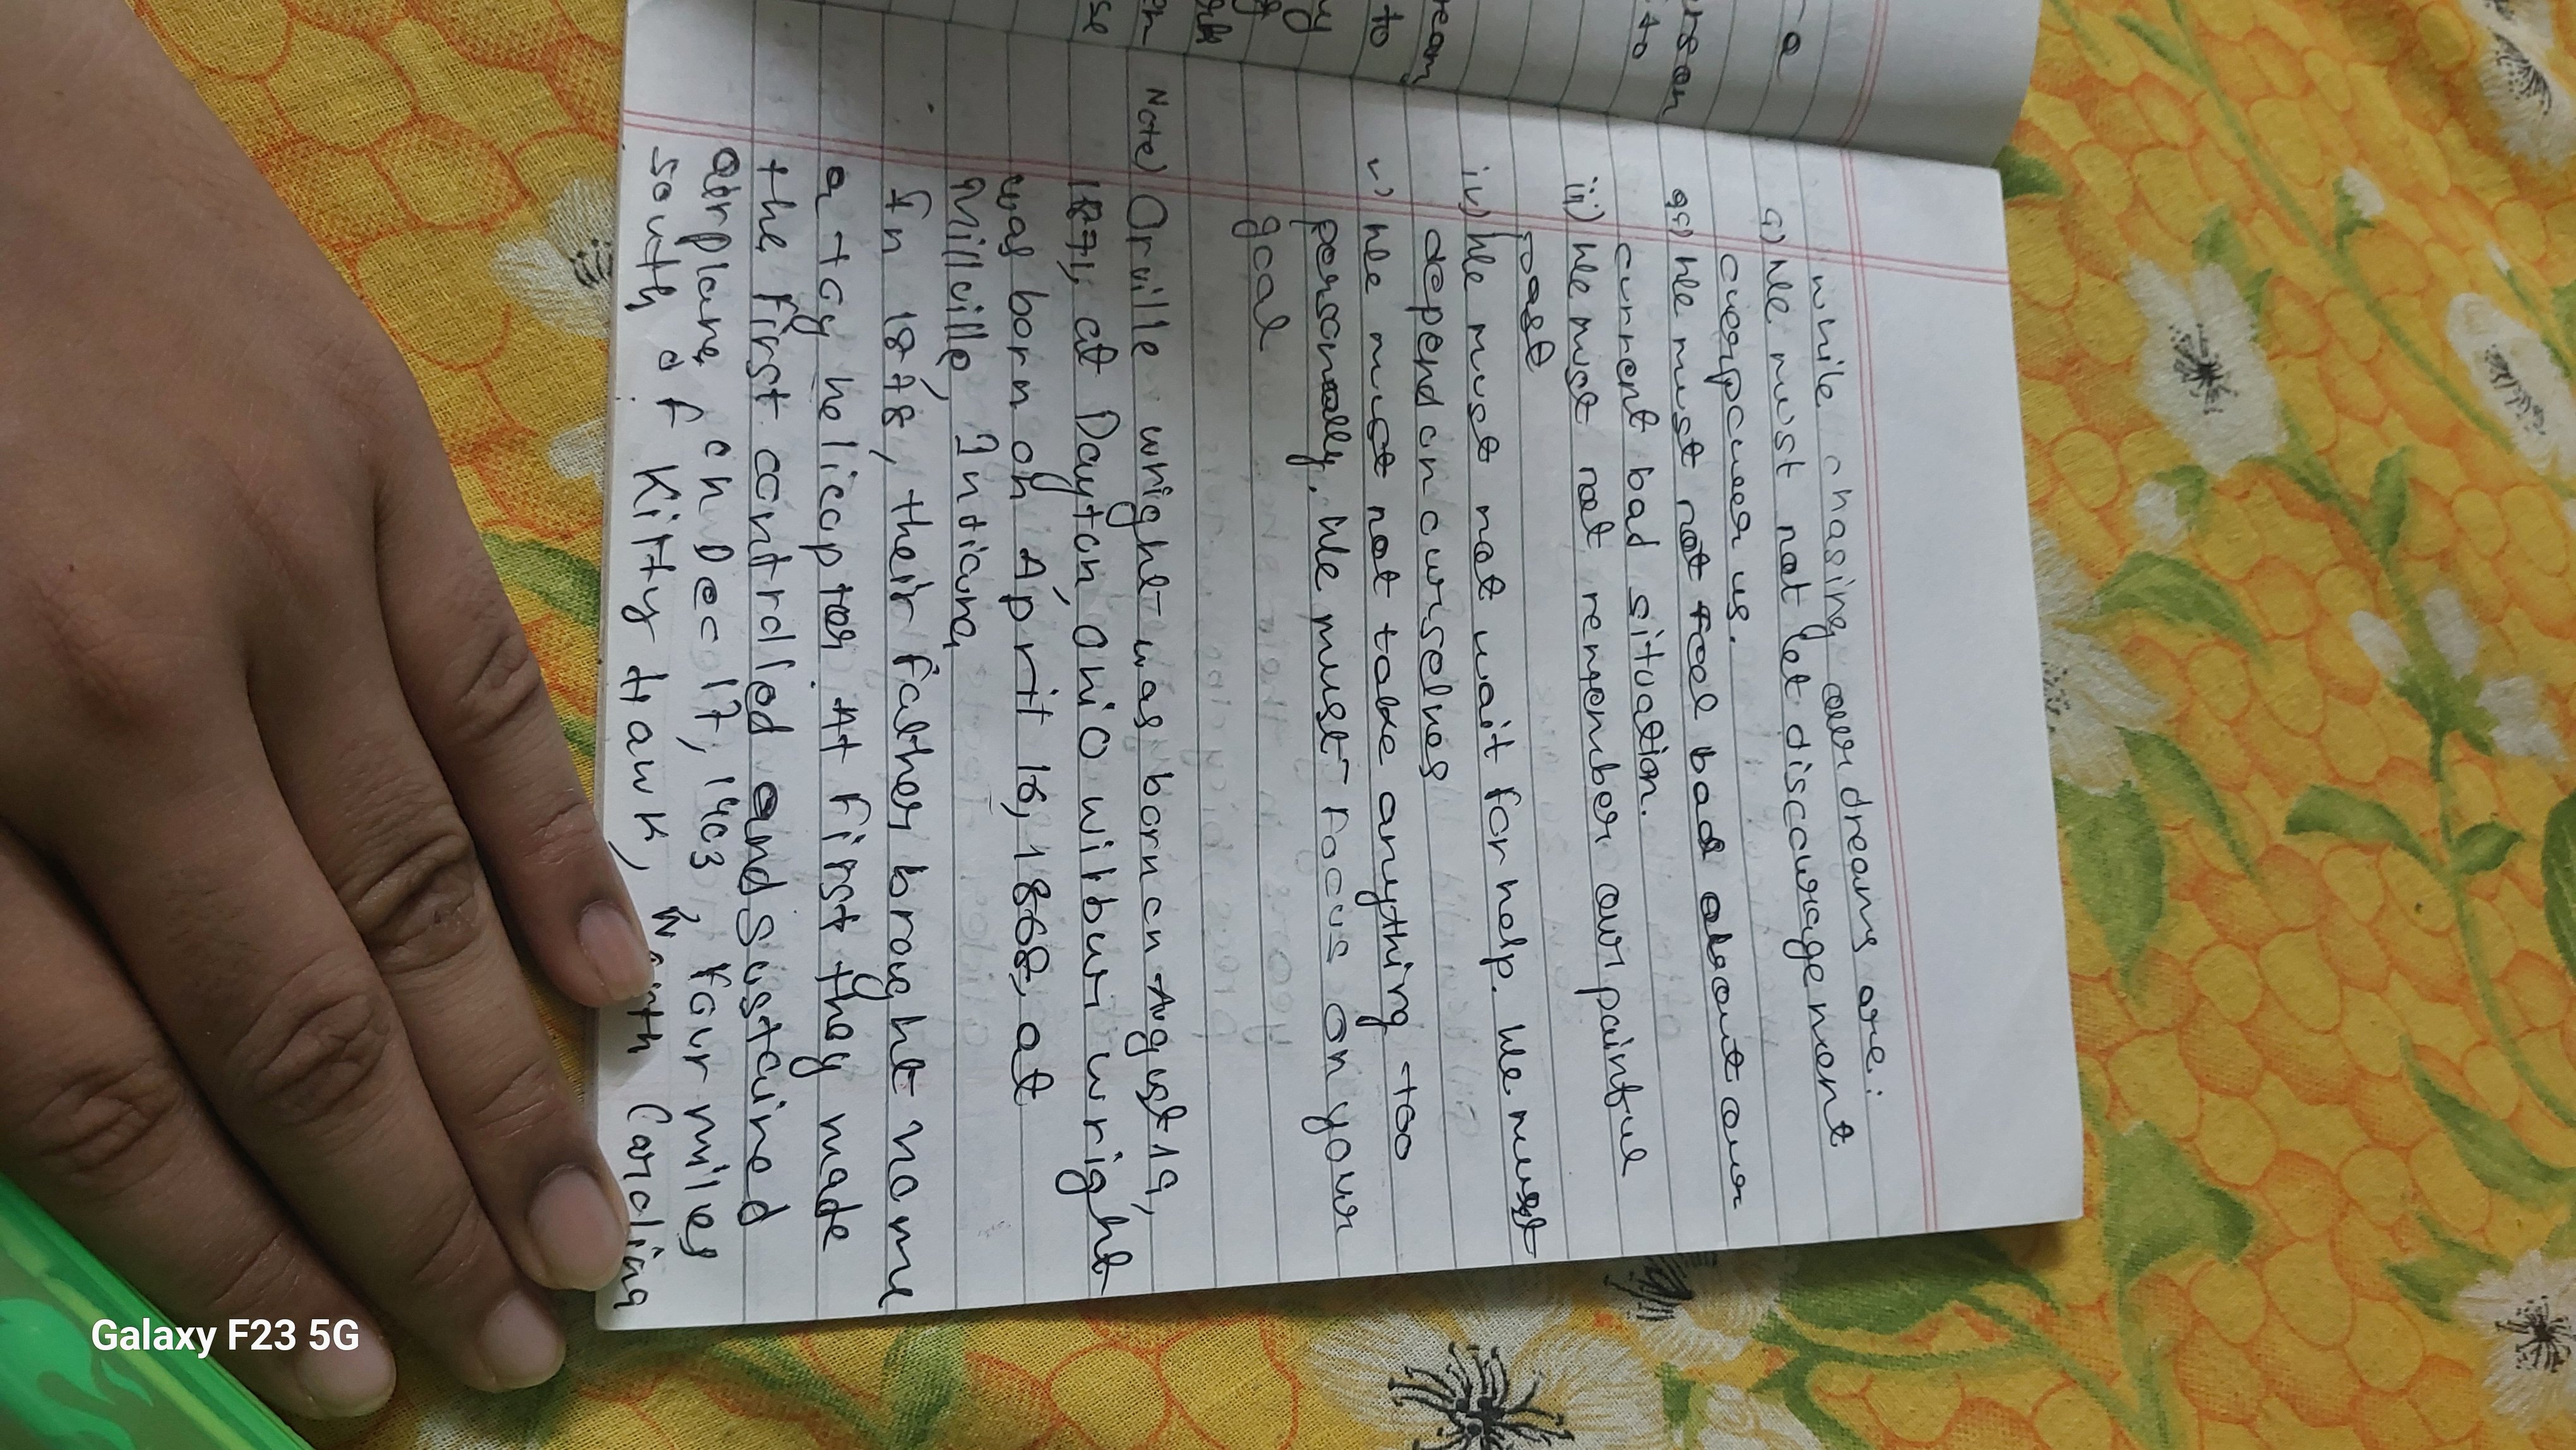 while chasing our dreams are:
i) We must not let discouragement
overpower us.
ii) We must not feel bad about our
current bad situation.
iii) We must not remember our painful
past
iv) We must not wait for help. We must
depend on ourselves
v) We must not take anything too
personally. We must focus on your
goal
Note) Orville wright was born on August 19,
1871, at Dayton, Ohio wilbur wright
was born on April 16, 1868, at
Millville, Indiana,
In 1878, their father brought home
a toy helicopter At first they made
the first controlled and sustained
airplane on Dec 17, 1903, four miles
south of Kitty Hawk, North Carolina
a
rson
to
ream
to
y
se
Galaxy F23 5G